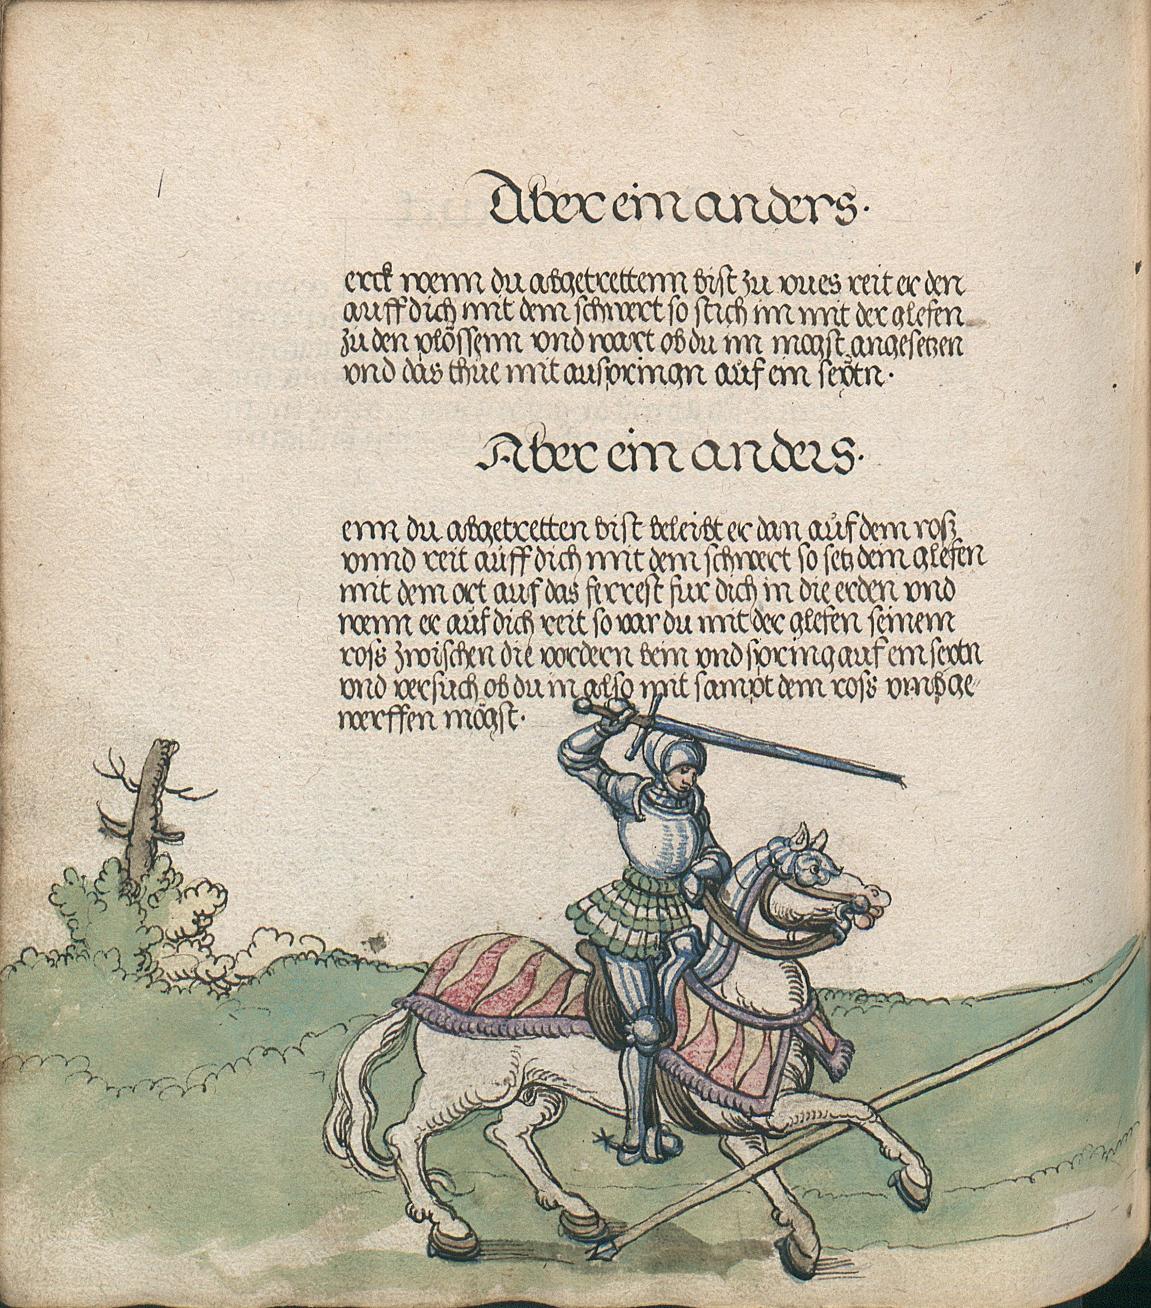 Aber ein anders.
erck wenn du abgetrettenn bist zu vues reit er den
auff dich mit dem schwert so stich im mit der glefen
zu den plössenn vnd wart ob du im mogst angesetzen
vnd das thue mit auspringn auf ein seytn.
Aber ein anders.
enn du abgetretten bist beleibt er dan auf dem roß
vnnd reit auff dich mit dem schwert so setz dem glefen
mit dem ort auf das ferrest fur dich in die erden vnd
wenn er auf dich reit so var du mit der glefen seinem
ross zwischen die vordern bein vnd spring auf ein seytn
vnd versuch ob du in also mit sampt dem ross vmbge-
werffen mögst.